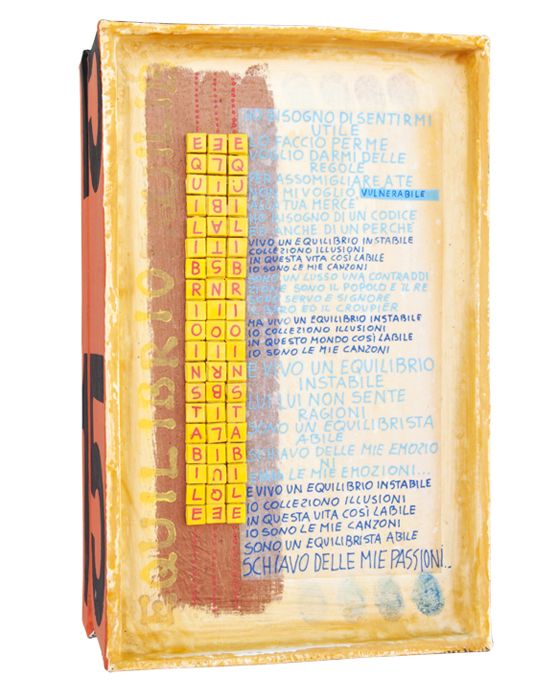 EQUILIBRIO
EQUILIBRIOINSTABILE
EQUILIBRIOINSTABILE
EQUILIBRIOINSTABILE
BISOGNO DI SENTIRMI
UTILE
LO FACCIO PER ME
VOGLIO DARMI DELLE
REGOLE
PER ASSOMIGLIARE A TE
NON MI VOGLIO VULNERABILE
ALLA TUA MERCE
HO BISOGNO DI UN CODICE
ED ANCHE DI UN PERCHE
VIVO UN EQUILIBRIO INSTABILE
COLLEZIONO ILLUSIONI
IN QUESTA VITA COSÌ LABILE
IO SONO LE MIE CANZONI
SONO UN LUSSO UNA CONTRADDI
ZIONE SONO IL POPOLO E IL RE
SONO SERVO E SIGNORE
ED IL CROUPIER
MA VIVO UN EQUILIBRIO INSTABILE
IO COLLEZIONO ILLUSIONI
IN QUESTO MONDO COSÌ LABILE
IO SONO LE MIE CANZONI
E VIVO UN EQUILIBRIO
INSTABILE
LUI NON SENTE
RAGIONI
SONO UN EQUILIBRISTA
ABILE
SCHIAVO DELLE MIE EMOZIO
NI
LE MIE EMOZIONI...
E VIVO UN EQUILIBRIO INSTABILE
IO COLLEZIONO ILLUSIONI
IN QUESTA VITA COSÌ LABILE
IO SONO LE MIE CANZONI
SONO UN EQUILIBRISTA ABILE
SCHIAVO DELLE MIE PASSIONI..